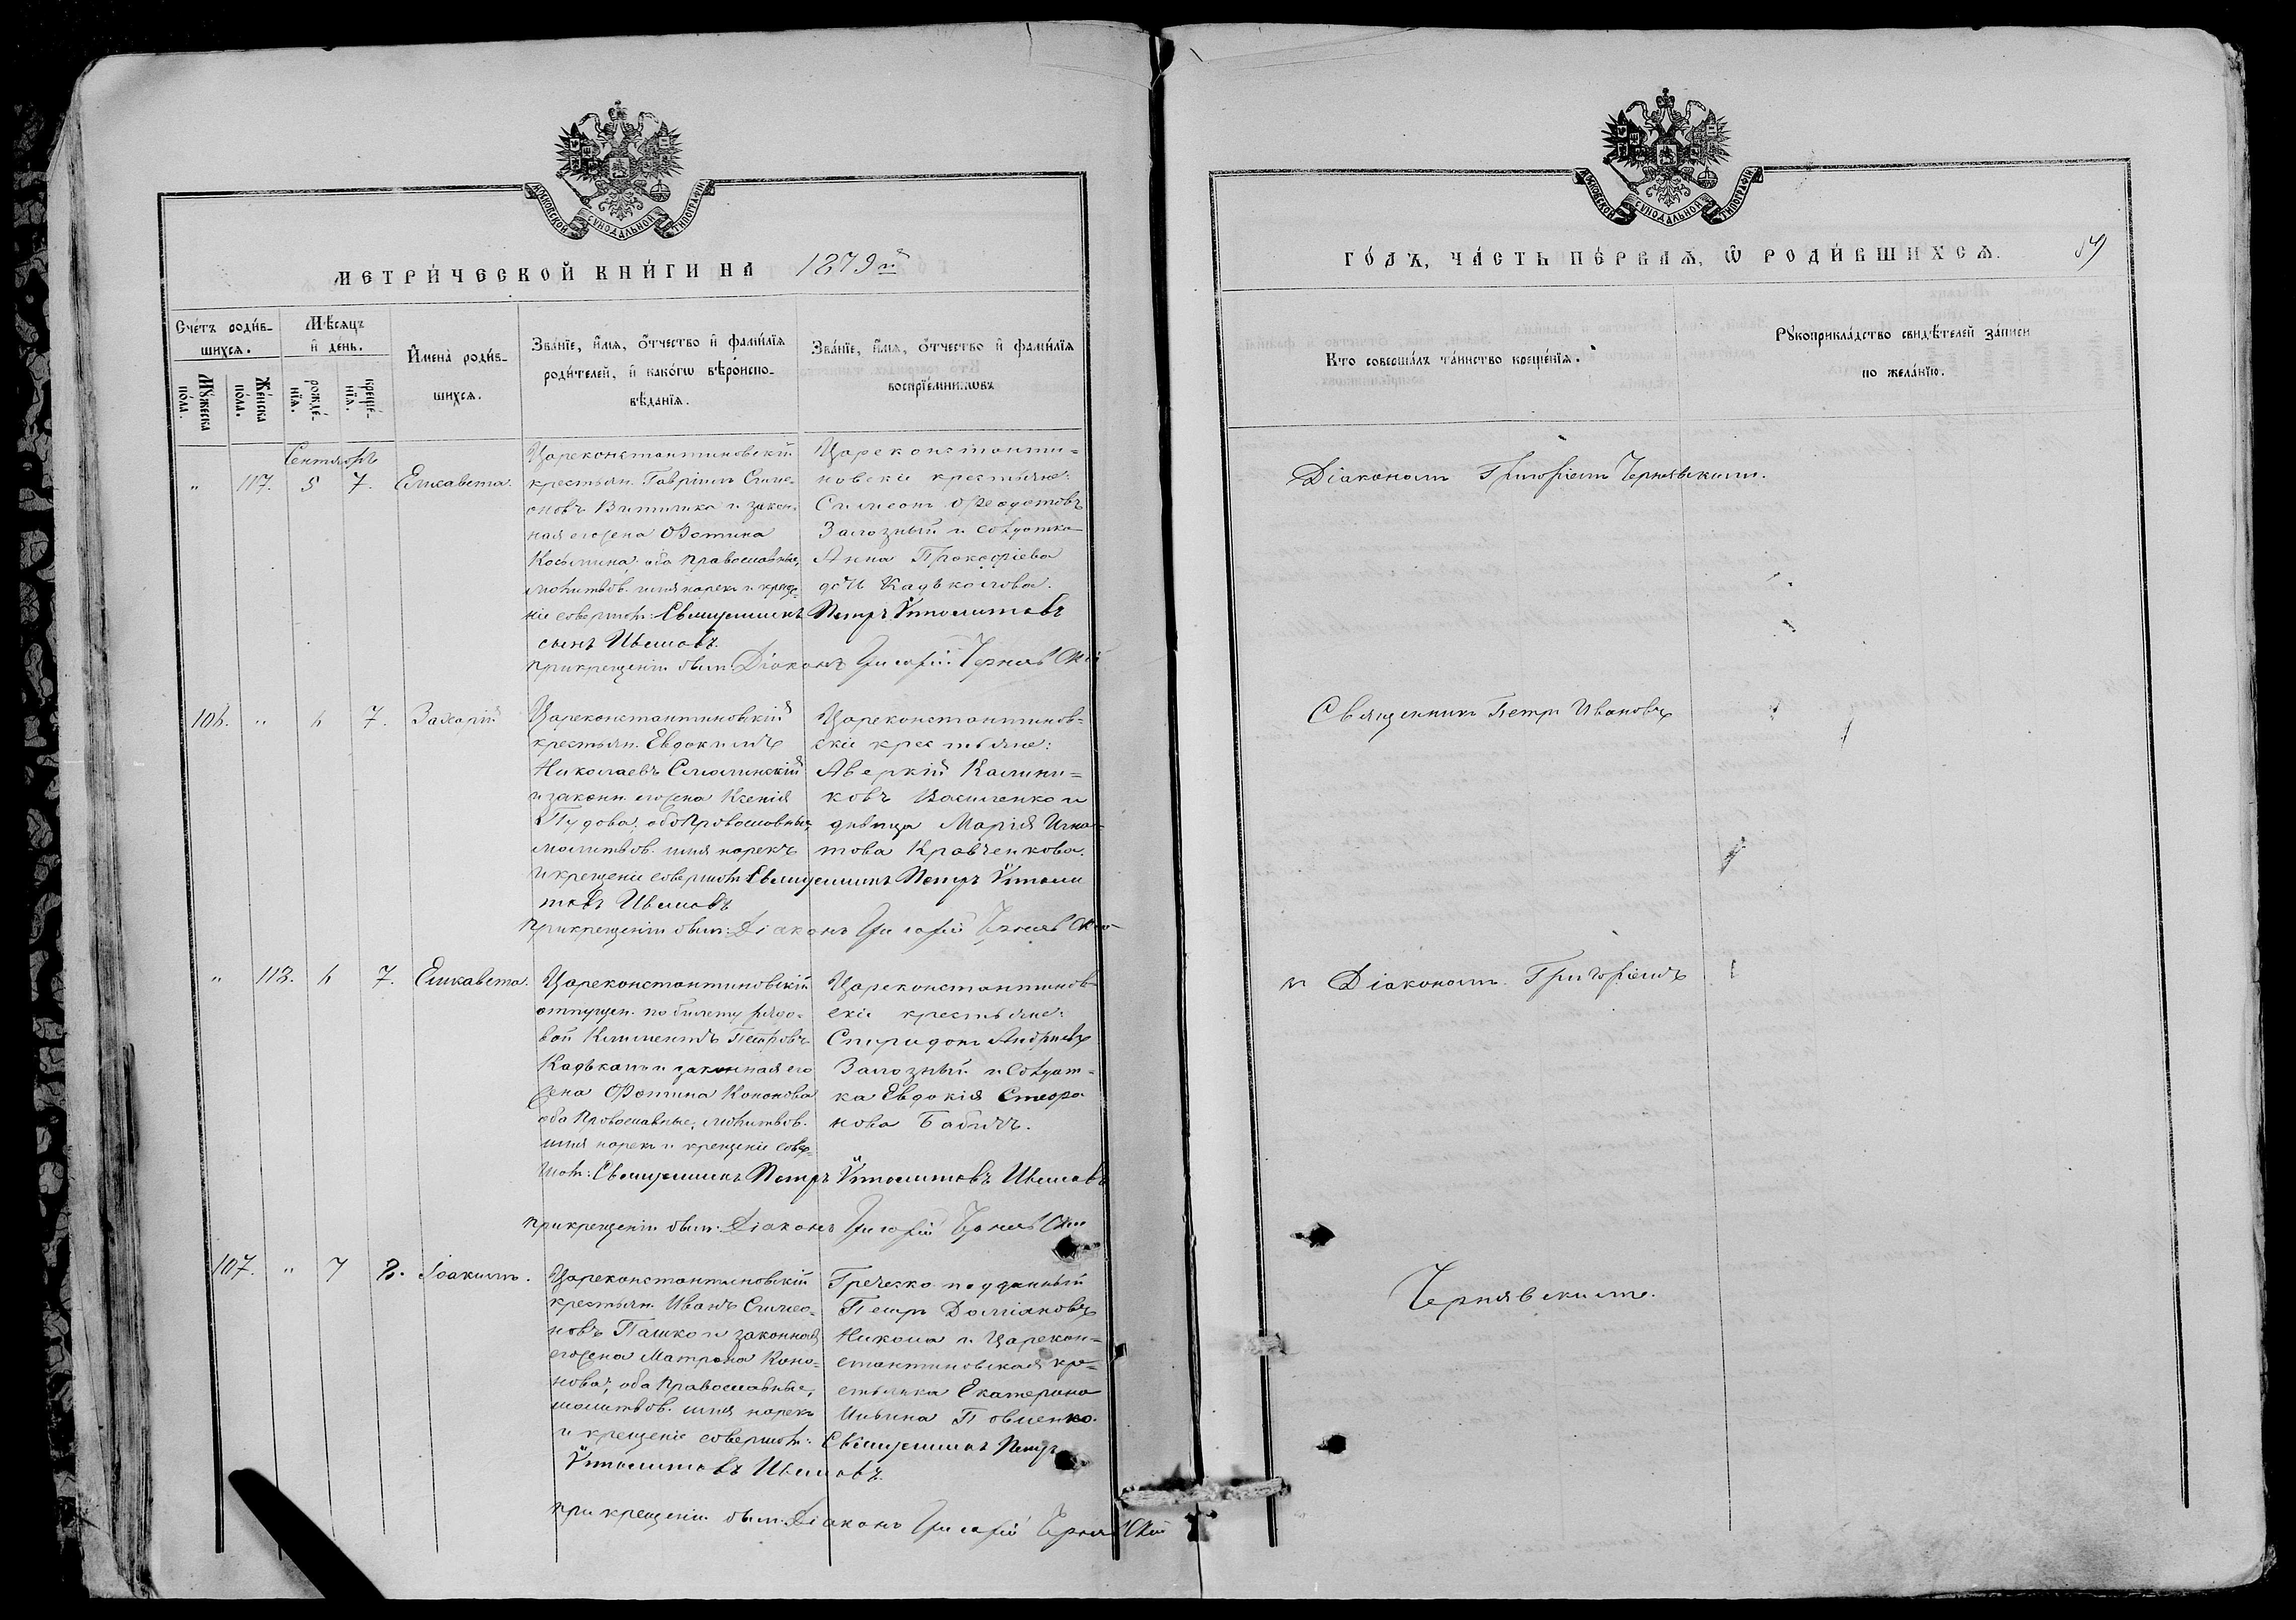 МОСКОВСКОЙ СѴНОДАЛЬНОЙ ТИПОГРАФІИ
МЕТРИ́ЧЕСКОЙ КНИ́ГИ НА 1879 й
Сче́тъ роди́в-
шихсѧ.
Мѣ́сѧцъ
и҆ де́нь.
И҆мена̀ роди́в-
шихсѧ.
Зва́нїе, и҆́мѧ, ѻ҆́тчество и҆ фами́лїѧ
роди́телей, и҆ како́гѡ вѣроиспо-
вѣ́данїѧ.
Зва́нїе, и҆́мѧ, ѻ҆́тчество и҆ фами́лїѧ
воспрїе́мникѡвъ
Мꙋ́жеска
по́ла.
Же́нска
по́ла.
рожде́-
нїѧ.
креще́-
нїѧ.
Сентябрь
" 117. 5 7. Елисавета.
Цареконстантиновскій
крестьян. Гавріилъ Симе-
оновъ Витишка и закон.
ная его жена Фотина
Косьмина, оба Православные,
молитвов. имя нарекъ и креще-
ніе соверш: Священникъ Петръ Ѵпполитовъ
сынъ Ивановъ.
при крещеніи былъ: Діаконъ Григорій Чернявскій
Цареконстанти-
новскіе крестьяне:
Симеонъ Феодотовъ
Залозный и солдатка
Анна Прокофіева
дочь Кадькалова.
106. " 6 7. Захарій
Цареконстантиновскій
крестьян. Евдокимъ
Николаевъ Смолинскій
и законн. его жена Ксенія
Пудова, оба Православные,
молитвов. имя нарекъ
и крещеніе соверш: Священникъ Петръ Ѵпполи
товъ Ивановъ
При крещеніи былъ: Діаконъ Григорій Чернявскій
Цареконстантинов-
скіе крестьяне:
Аверкій Калини-
ковъ Василенко и
дѣвица Марія Игна-
това Кравченкова.
" 118. 6 7. Елисавета.
Цареконстантиновскій
отпущен. по билету рядо-
вой Климентъ Петровъ
Кадькалъ и законная его
жена Фотина Кононова
оба Православные, молитвов.
имя нарекъ и крещеніе совер-
шилъ: Священникъ Петръ Ѵпполитовъ Ивановъ
При крещеніи былъ: Діаконъ Григорій Чернявскій
Цареконстантинов
скіе крестьяне:
Спиридонъ Андреевъ
Залозный и солдат-
ка Евдокія Стефа
нова Бабичъ.
107. " 7 8. Іоакимъ.
Цареконстантиновскій
крестьян. Иванъ Симео-
новъ Пашко и законная
его жена Матрона Коно-
нова, оба Православные,
молитвов. имя нарекъ
и крещеніе соверш: Священникъ Петръ
Ѵпполитовъ Ивановъ.
при крещеніи былъ: Діаконъ Григорій Чернявскій
Греческо-подданный
Петръ Даміановъ
Никола и Царекон-
стантиновская кре-
стьянка Екатерина
Ильина Повленко.
МОСКОВСКОЙ СѴНОДАЛЬНОЙ ТИПОГРАФІИ
ГО́ДЪ, ЧА́СТЬ ПЕ́РВАѦ, Ѽ РОДИ́ВШИХСѦ.
Кто соверша́лъ та́инство креще́нїѧ.
Рꙋкоприкла́дство свидѣ́телей за́писи
по жела́нїю.
Діакономъ Григоріемъ Чернявскимъ.
Священникъ Петръ Ивановъ
и Діакономъ Григоріемъ
Чернявскимъ.